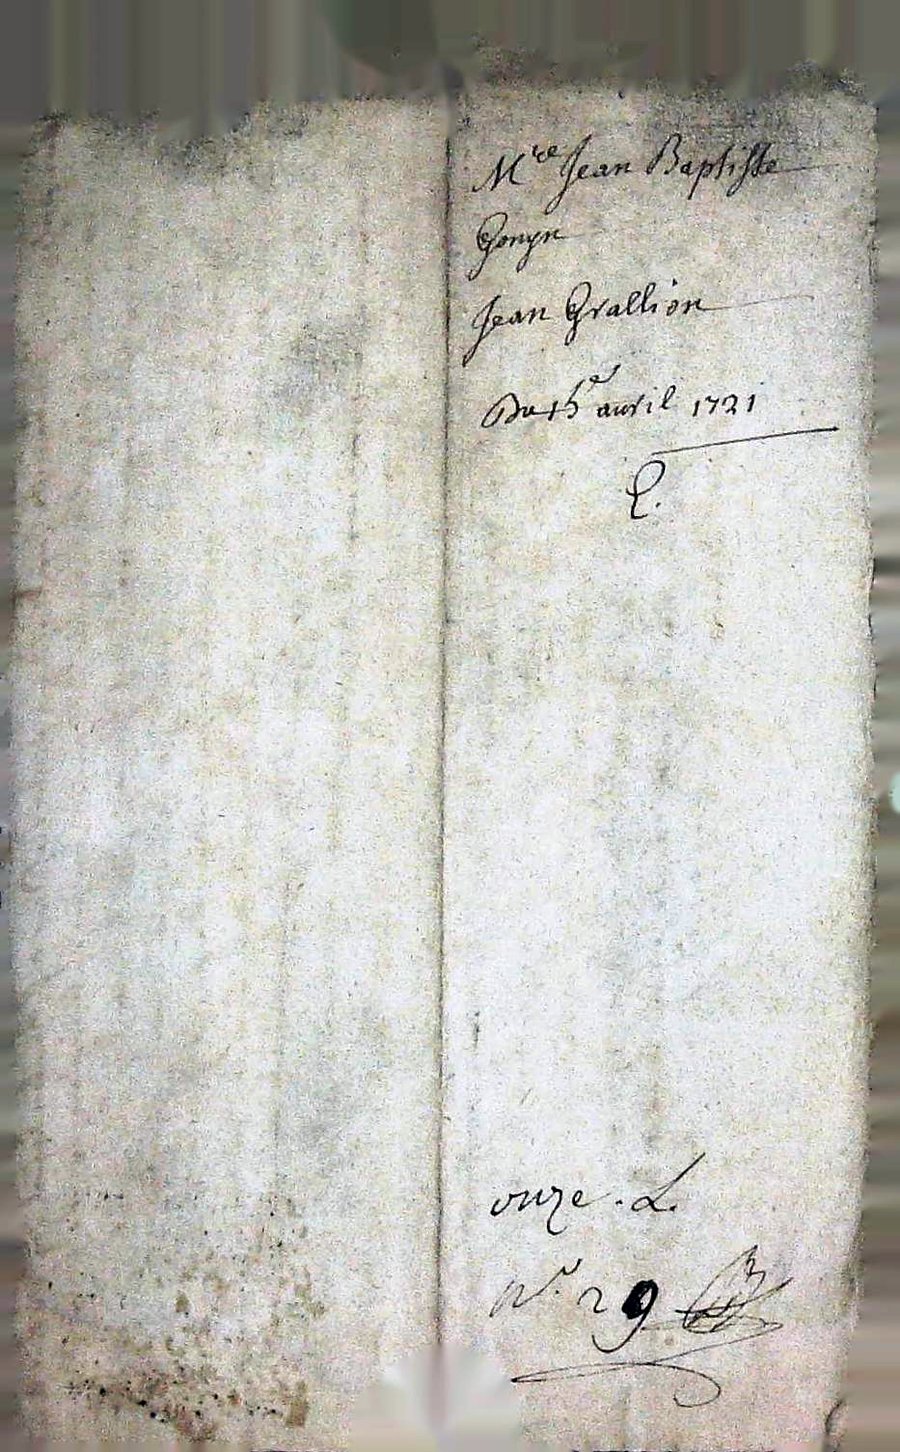 Mre Jean Baptiste
Gonyn
Jean Grallion
Du 15e auril 1721
onze . L.
No. 29